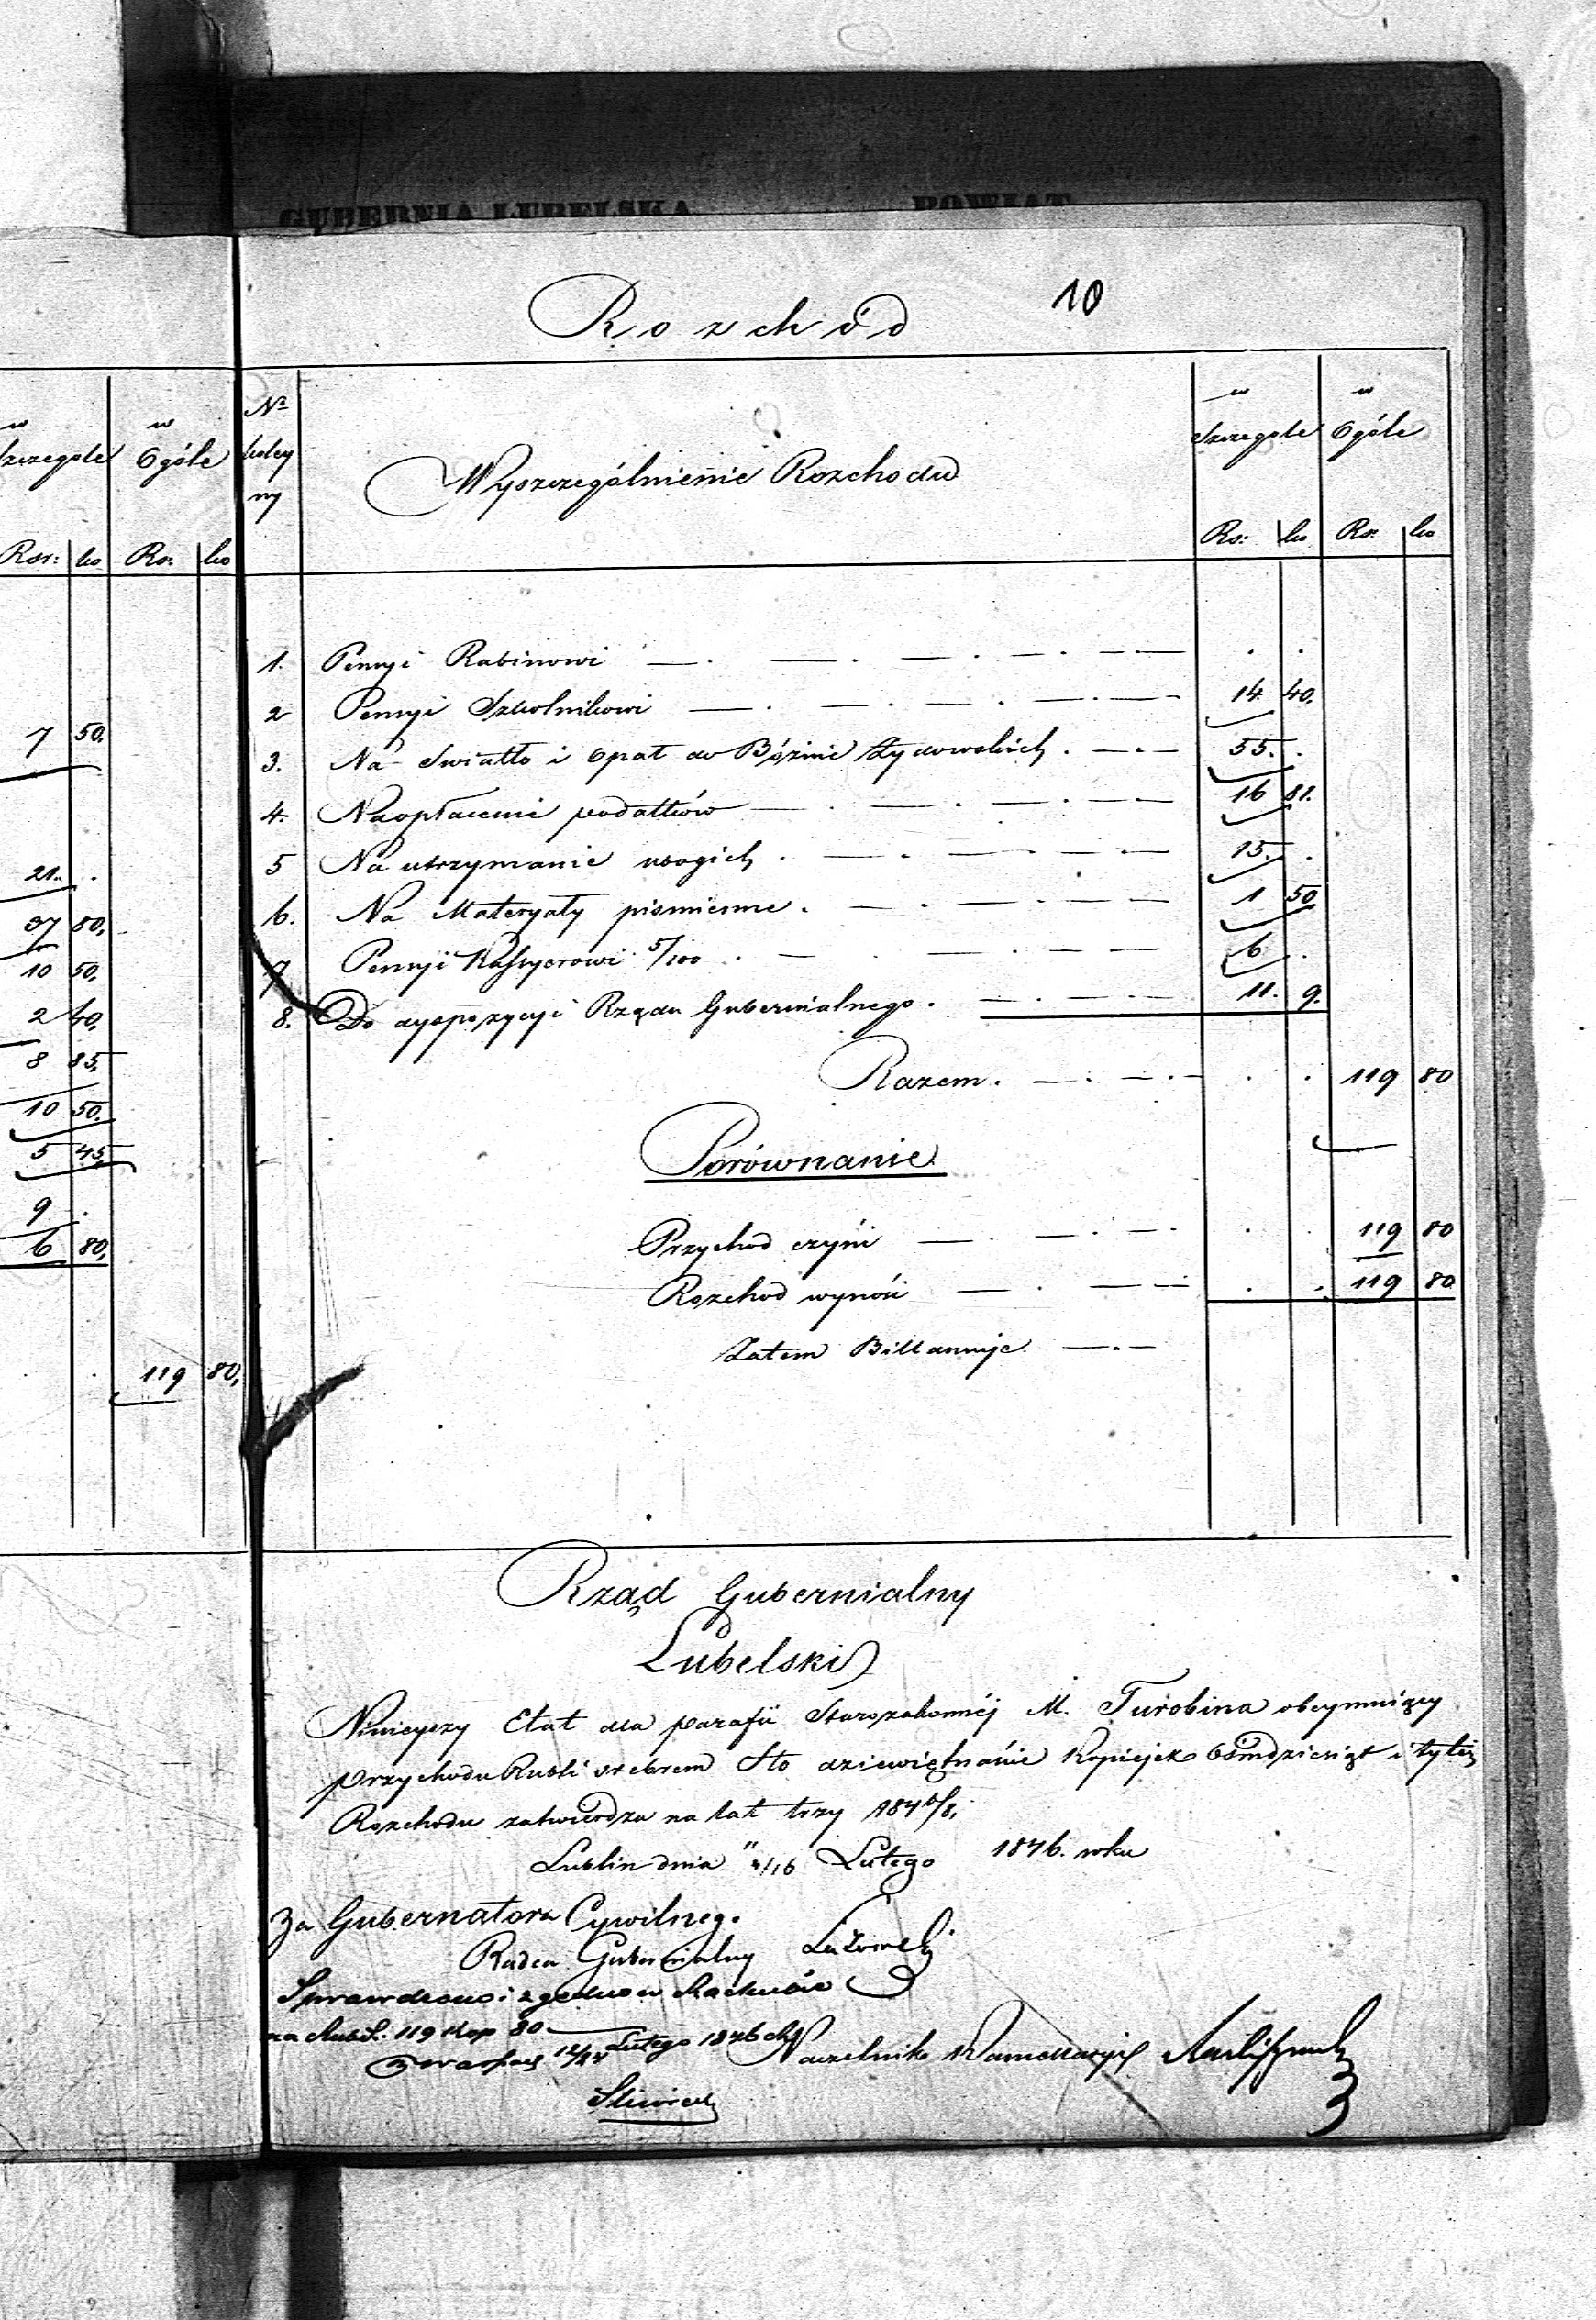 GUBERNIA LUBELSKA POWIAT
10
Rozchód
w Szczegole w Ogóle
Rsr: ko Rs. ko
7 50.
21. .
37 80.
10 50.
2 40.
8 85.
10 50.
5 45.
9 .
6 80.
119 80.
No kolejny Wyszczególnienie Rozchodu w Szczegole w Ogóle
Rs: ko Rs: ko
1. Pensyi Rabinowi . .
2 Pensyi Szkolnikowi 14. 40.
3. Na Swiatło i Opał do Bóźnic Żydowskich . 55. .
4. Na opłacenie podatków 16 81.
5 Na utrzymanie ubogich . 15. .
6. Na Materyały piśmienne . 1 50
7 Pensyi Kassyerowi 5/100 . 6 .
8. Do dyspozycyi Rządu Gubernialnego . 11. 9.
Razem . . . 119 80
Porównanie
Przychod czyni . . 119 80
Rozchod wynosi . . 119 80
Zatem Billansuje
Rząd Gubernialny
Lubelski
Ninieyszy Etat dla parafii Starozakonnéj M. Turobina obeymuiący
przychodu Rubli srebrem Sto dziewiętnaście Kopiejek Ośmdziesiąt i tyleż
Rozchodu zatwierdza na lat trzy 1846/8.
Lublin dnia 4/16 Lutego 1846. roku
Za Gubernatora Cywilnego
Radca Gubernialny
Sprawdzono i zgodno w Rachubie
na Rub S. 119 Kop 80
Lutego 1846
Naczelnik Kancellaryi